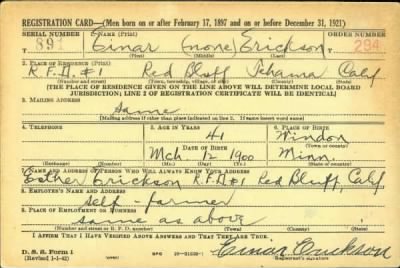 REGISTRATION CARD—(Men born on or after February 17, 1897 and on or before December 31, 1921)
SERIAL NUMBER 1. NAME (Print) ORDER NUMBER
891 Einar (none) Erickson 294
(First) (Middle) (Last)
2. PLACE OF RESIDENCE (Print)
R.F.D. #1 Red Bluff Tehama Calif
(Number and street) (Town, township, village, or city) (County) (State)
[THE PLACE OF RESIDENCE GIVEN ON THE LINE ABOVE WILL DETERMINE LOCAL BOARD
JURISDICTION; LINE 2 OF REGISTRATION CERTIFICATE WILL BE IDENTICAL]
3. MAILING ADDRESS
Same
[Mailing address if other than place indicated on line 2. If same insert word same]
4. TELEPHONE 5. AGE IN YEARS 6. PLACE OF BIRTH
41 Windom
DATE OF BIRTH (Town or county)
Mch 12 1900 Minn.
(Exchange) (Number) (Mo.) (Day) (Yr.) (State or country)
7. NAME AND ADDRESS OF PERSON WHO WILL ALWAYS KNOW YOUR ADDRESS
Esther Erickson R.F.D. #1 Red Bluff, Calif
8. EMPLOYER'S NAME AND ADDRESS
Self - farmer
9. PLACE OF EMPLOYMENT OR BUSINESS
Same as above
(Number and street or R. F. D. number) (Town) (County) (State)
I AFFIRM THAT I HAVE VERIFIED ABOVE ANSWERS AND THAT THEY ARE TRUE.
D. S. S. Form 1
(Revised 1-1-42) GPO Einar Erickson
(Registrant's signature)